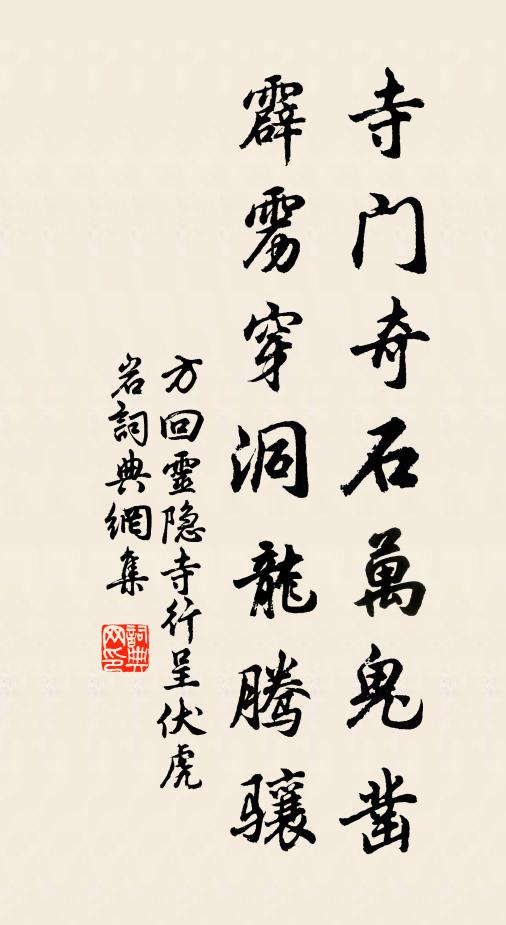 寺門奇石萬鬼鑿
霹雳穿洞龍腾骧
方回靈隐寺行呈伏虎
岩詞典網集
詞典网印